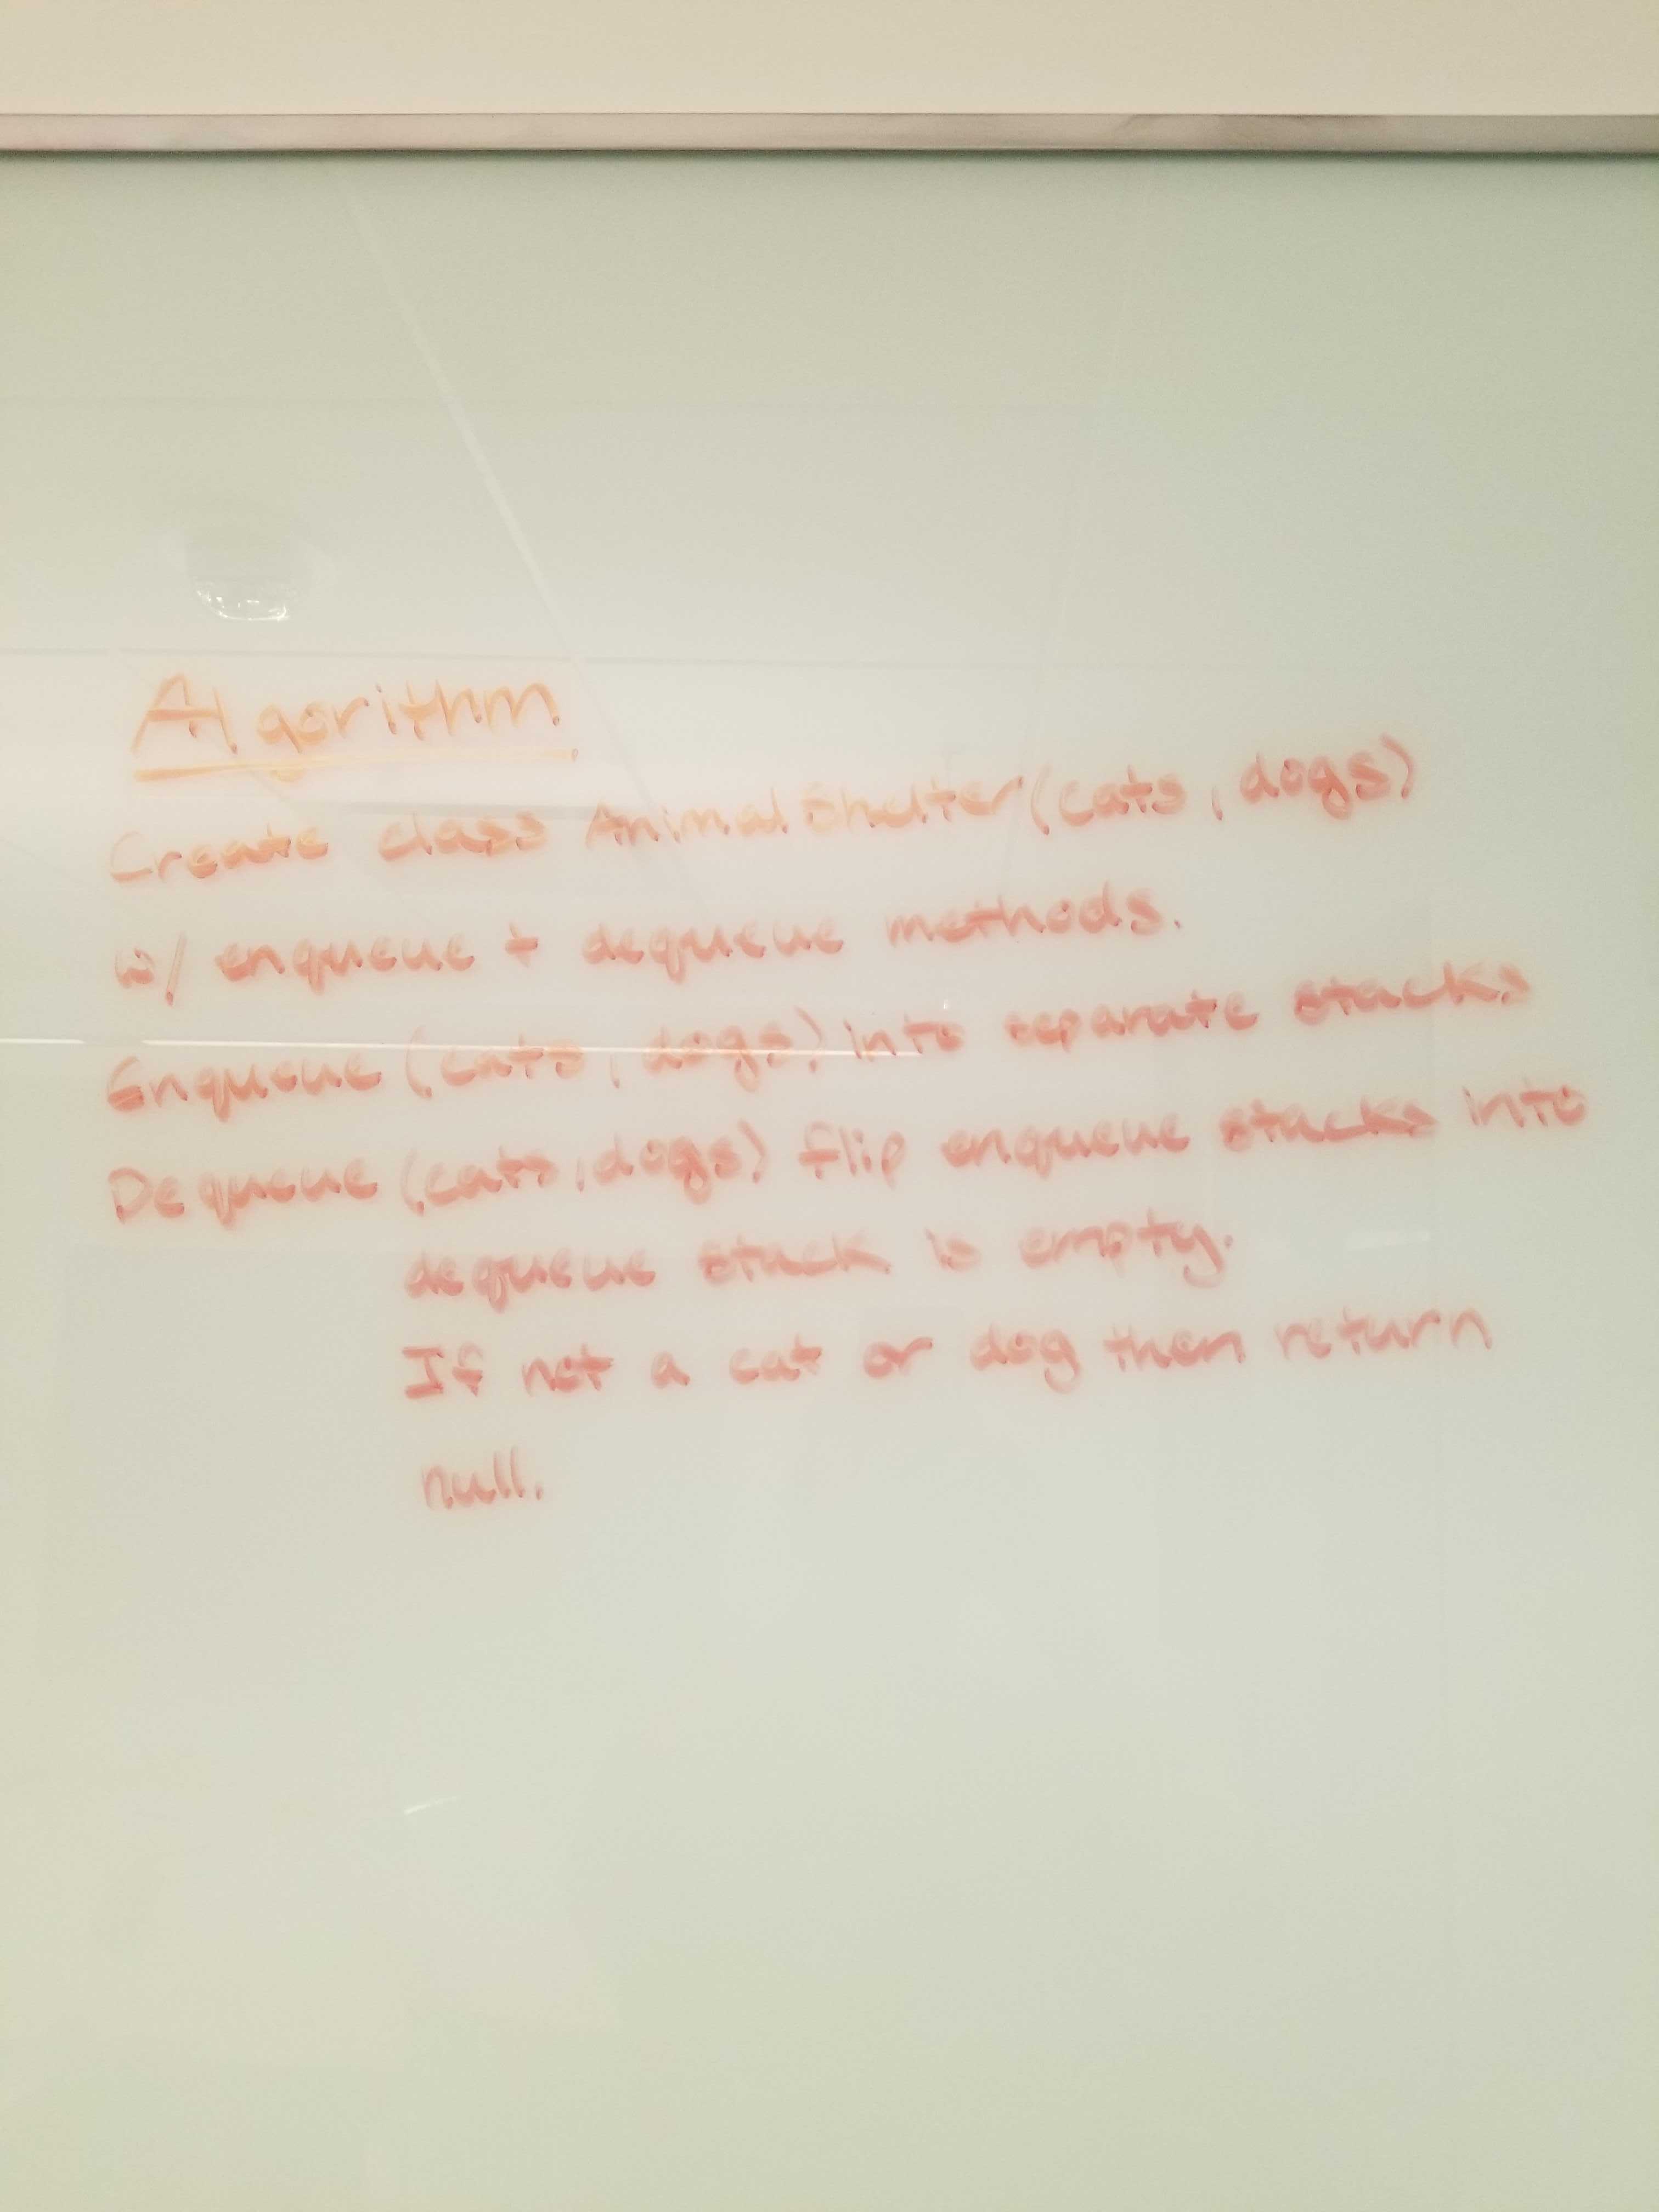 Algorithm
Create class AnimalShelter(cats, dogs)
w/ enqueue + dequeue methods.
Enqueue (cats, dogs) into separate stacks
Dequeue (cats, dogs) flip enqueue stacks into
dequeue stack is empty.
If not a cat or dog then return
null.